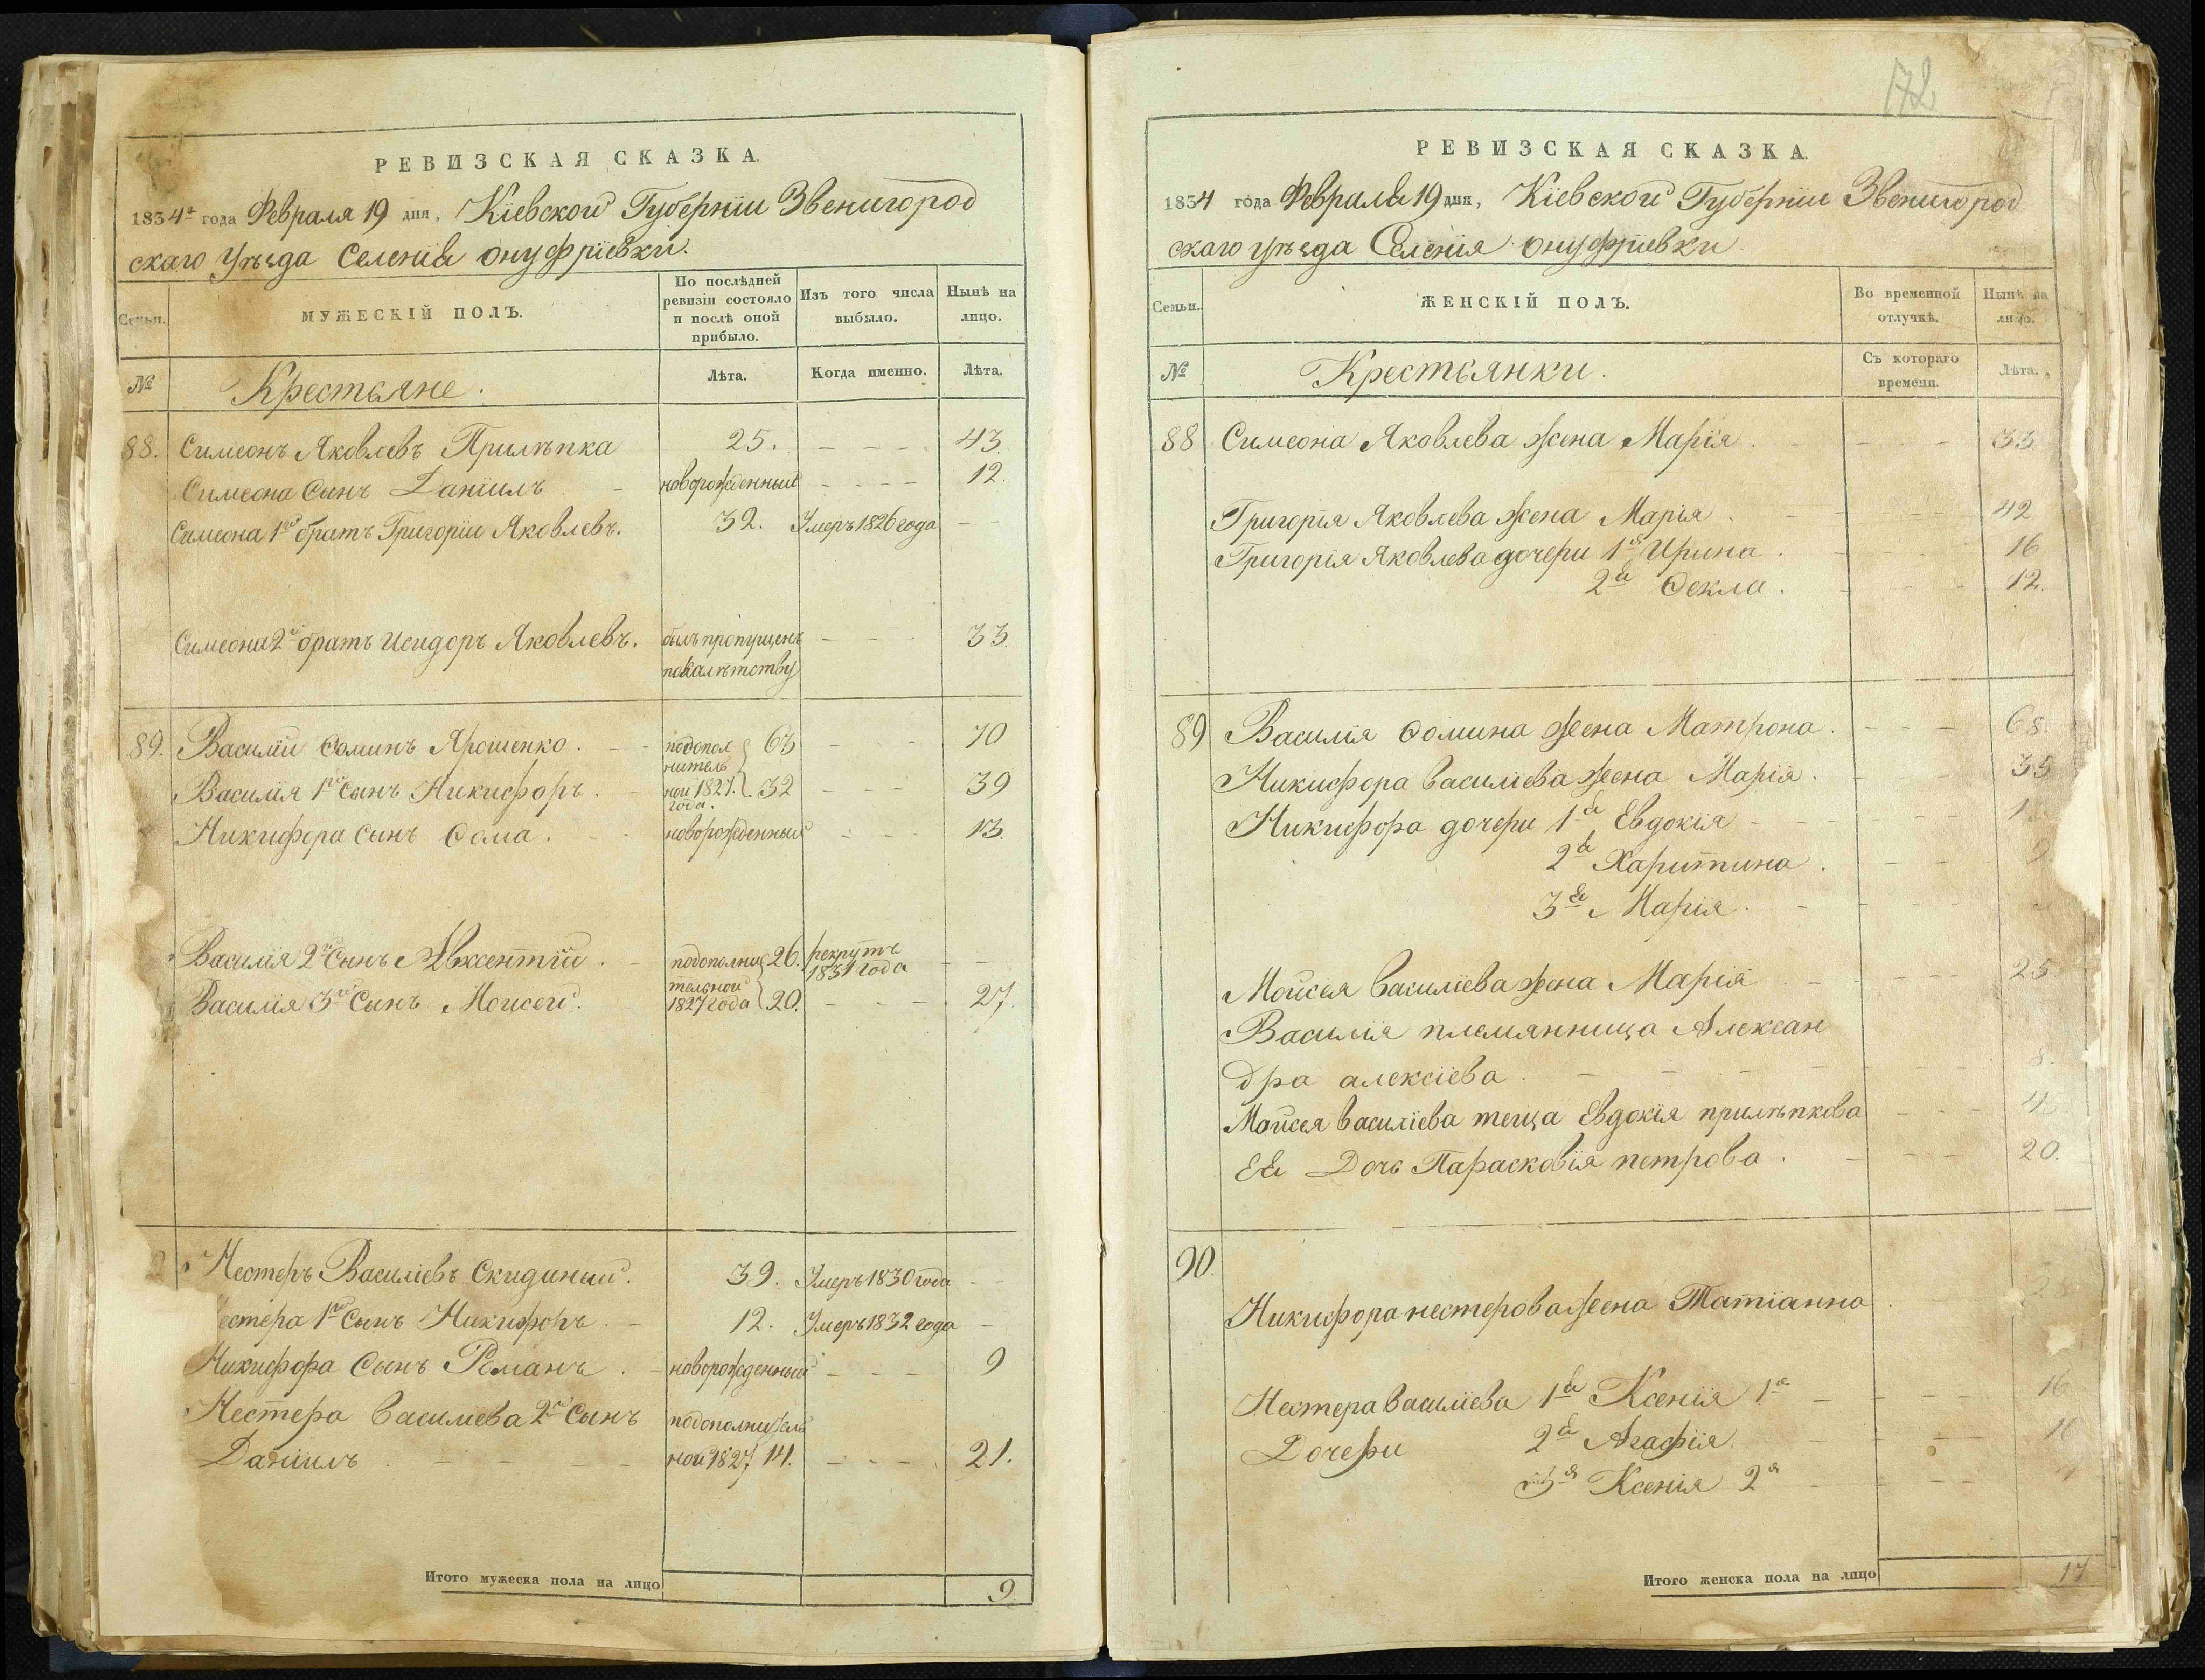 РЕВИЗСКАЯ СКАЗКА.
1834а года Февраля 19 дня, Кіевской Губерніи Звенигород
скаго уѣзда Селенія онуфріевки.
Семьи.
МУЖЕСКІЙ ПОЛЪ.
По послѣдней
ревизіи состояло
и послѣ оной
прибыло.
Изъ того числа
выбыло.
Нынѣ на
лицо.
№
Крестьяне.
Лѣта.
Когда именно.
Лѣта.
88. Симеонъ Яковлевъ Прилѣпка 25. 43.
Симеона Сынъ Даніилъ новорожденный 12.
Симеона 1й братъ Григорій Яковлевъ. 32. Умеръ 1826 года
Симеона 2й братъ Исидоръ Яковлевъ. былъ пропущенъ 33.
покалѣтству
89. Василій Ѳоминъ Ярошенко. подопол 63 70
нитель
Василія 1й Сынъ Никифоръ. ной 1827. 32 39
года.
Никифора Сынъ Ѳома. новорожденный 13.
Василія 2й Сынъ Авксентій. подополни 26. рекрутъ
1831 года
тельной
Василія 3й Сынъ Моисей. 1827 года 20. 27.
Нестеръ Василіевъ Скидиный. 39. Умеръ 1830 года
естера 1й Сынъ Никифоръ. 12. Умеръ 1832 года
Никифора Сынъ Романъ. новорожденный 9
Нестера василіева 2й Сынъ подополнитель
Даніилъ ной 1827 14. 21.
Итого мужеска пола на лицо 9.
172
РЕВИЗСКАЯ СКАЗКА.
1834 года Февраля 19 дня, Кіевской Губерніи Звенигород
скаго уѣзда Селенія онуфріевки.
Семьи.
ЖЕНСКІЙ ПОЛЪ.
Во временной
отлучкѣ.
Нынѣ на
лицо.
№
Крестьянки.
Съ котораго
времени.
Лѣта.
88 Симеона Яковлева жена Марія. 33
Григорія Яковлева жена Марія. 42
Григорія Яковлева дочери 1я Ирина. 16
2я Ѳекла. 12.
89 Василія Ѳомина жена Матрона. 68.
Никифора василіева жена Марія. 35
Никифора дочери 1я Евдокія
2я Харитина.
3я Марія.
Мойсея василіева жена Марія 25
Василія племянница Алексан
дра алексіева. 8.
Мойсея василіева теща Евдокія прилѣпкова
Ея Дочь Парасковія петрова. 20.
90.
Никифора нестерова жена Татіанна.
Нестера василіева 1я Ксенія 1я 16
Дочери 2я Агафія.
3я Ксенія 2я
Итого женска пола на лицо 17